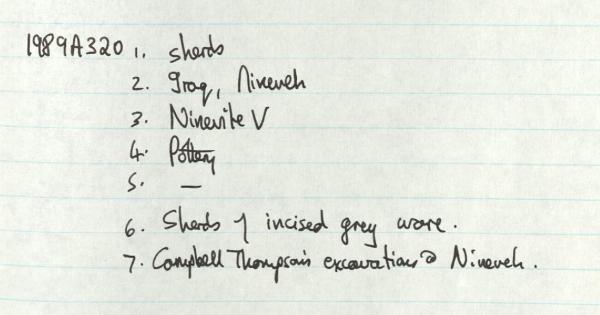 1989A320 1. sherds
2. Iraq, Nineveh
3. Ninevite V
4. Pottery
5. —
6. Sherds of incised grey ware.
7. Campbell Thompson's excavations @ Nineveh.